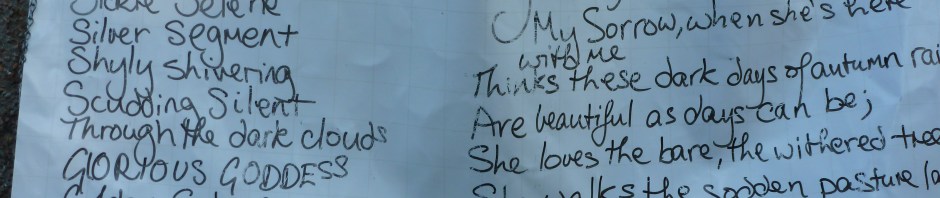 Selene
Silver Segment
Shyly shivering
Scudding Silent
Through the dark clouds
GLORIOUS GODDESS
My Sorrow, when she's here
with me
Thinks these dark days of autumn rai
Are beautiful as days can be;
She loves the bare, the withered tree
walks the sodden pasture la